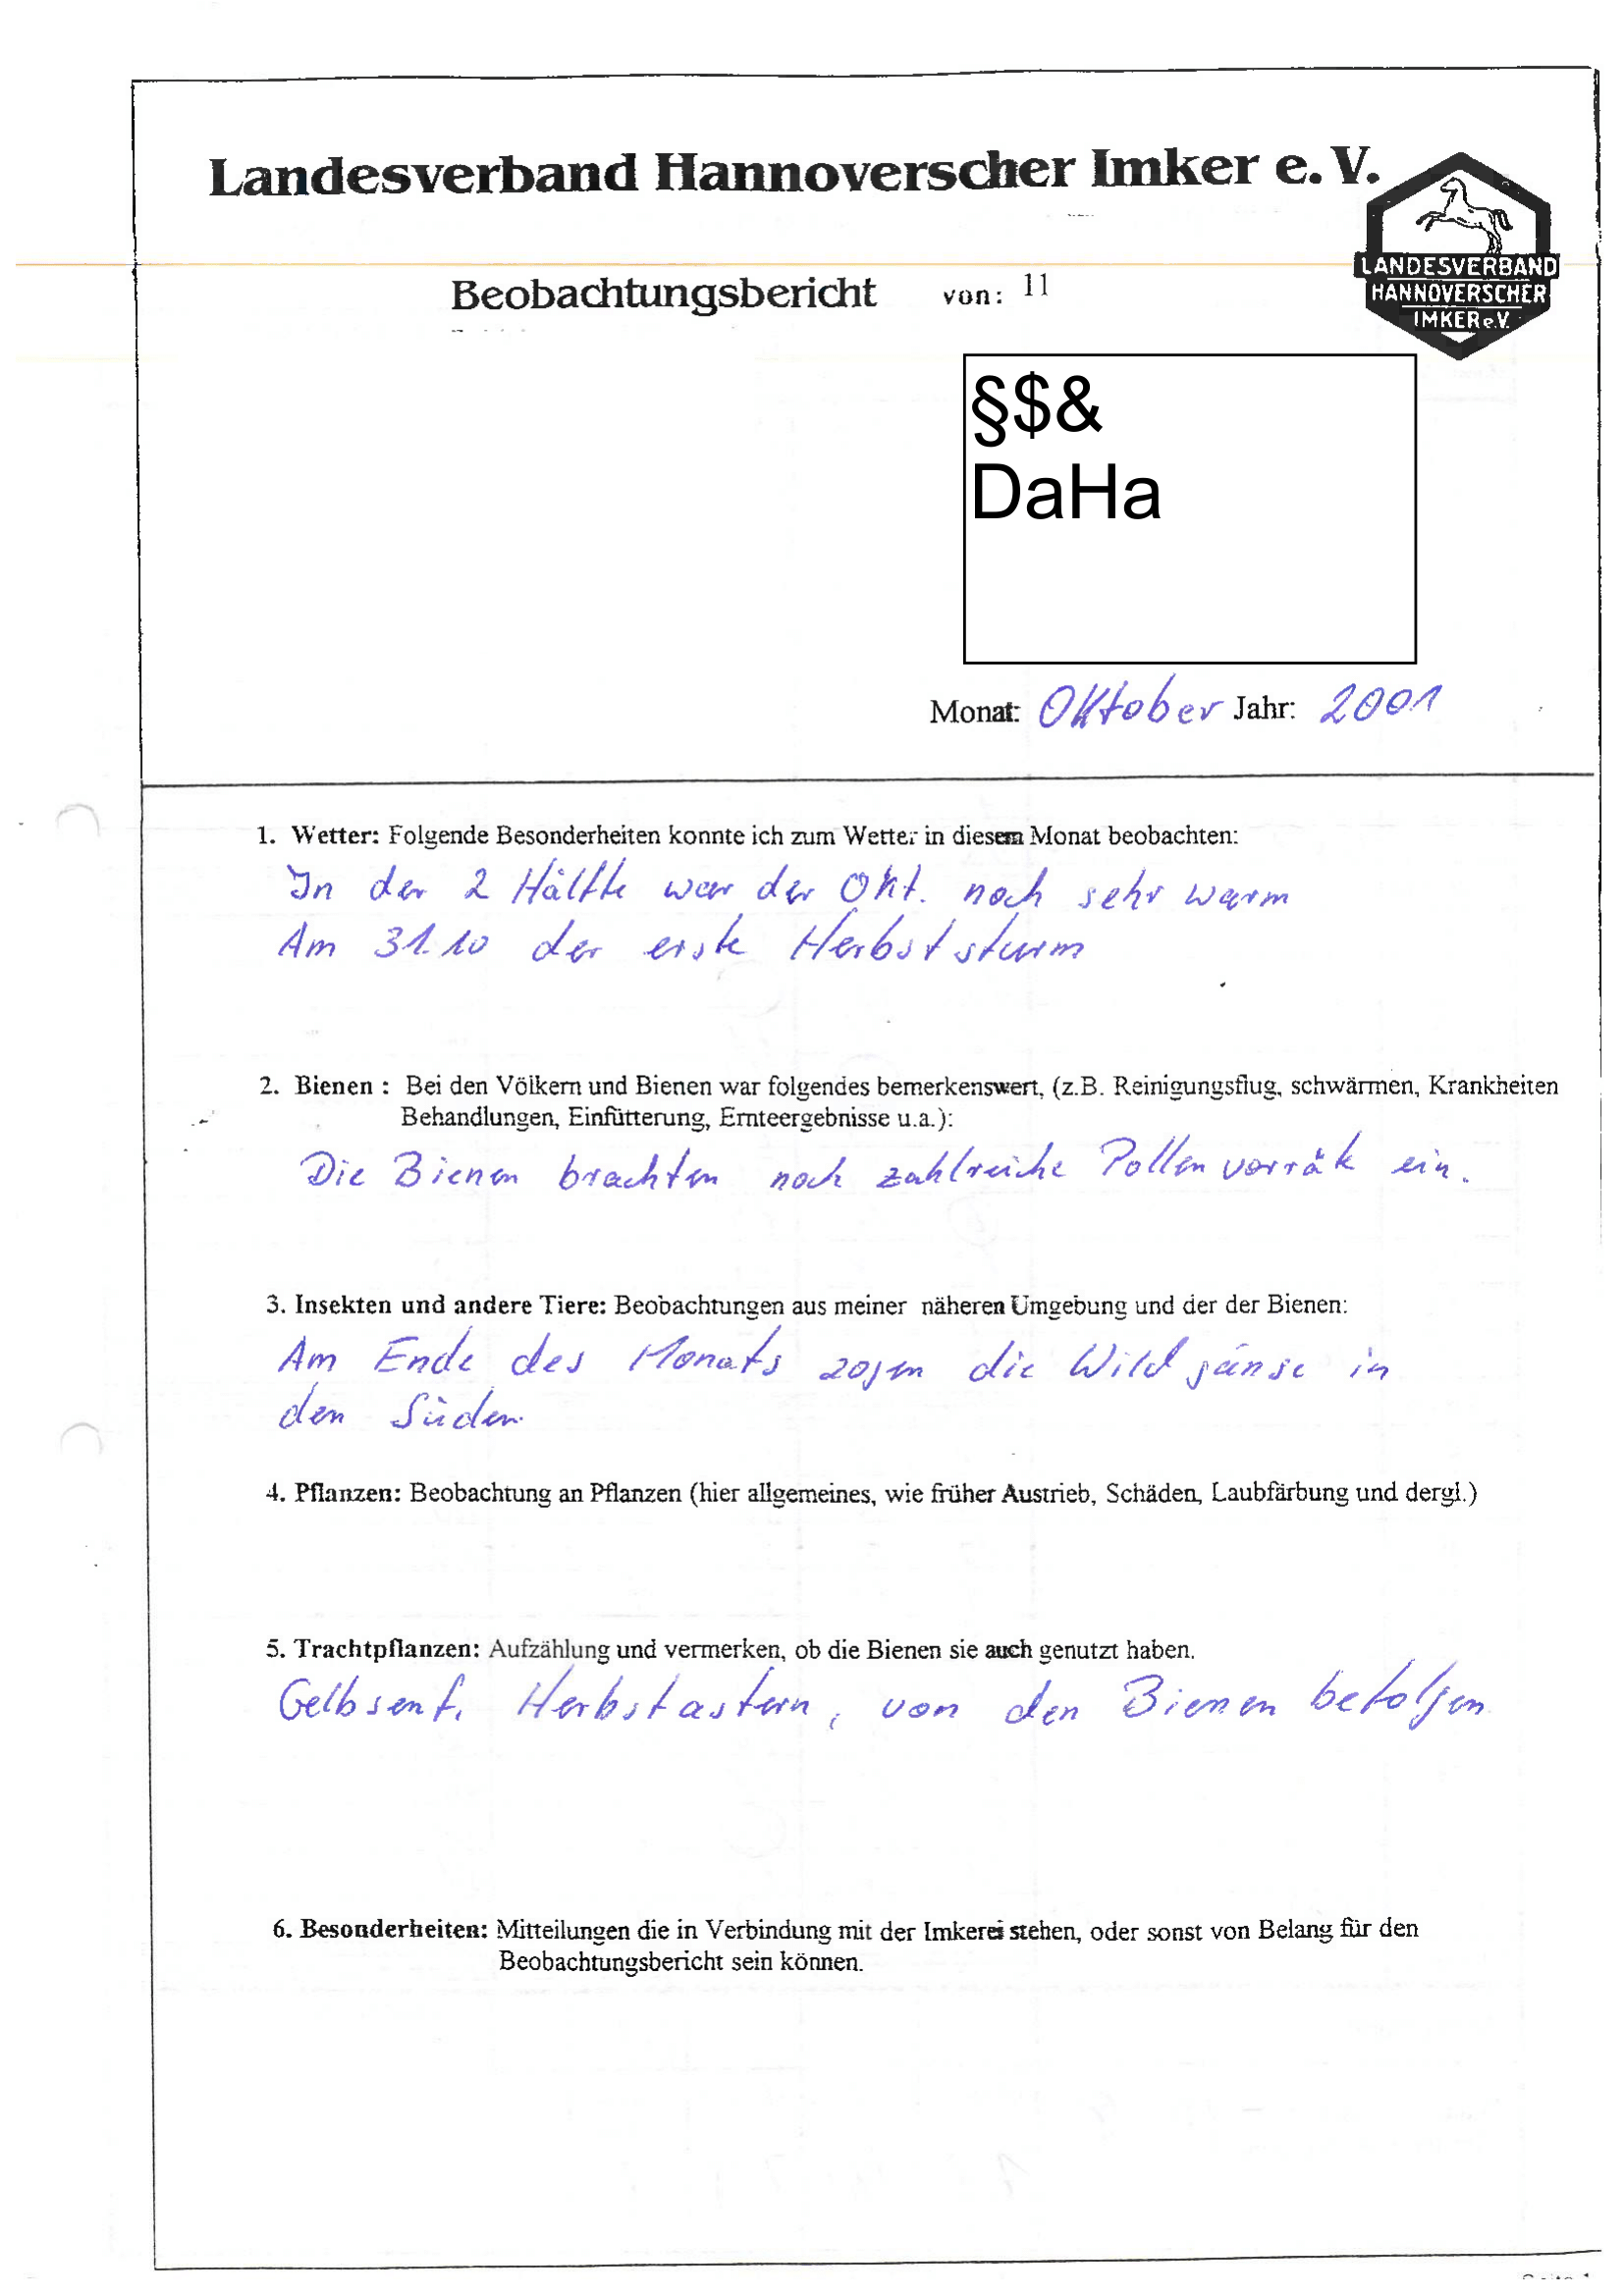 Landesverband Hannoverscher Imker e.V.
LANDESVERBAND
HANNOVERSCHER
IMKER e.V.
Beobachtungsbericht von: 11
§$&
DaHa
Monat: Oktober Jahr: 2001
1. Wetter: Folgende Besonderheiten konnte ich zum Wetter in diesem Monat beobachten:
In der 2 Hälfte war der Okt. noch sehr warm
Am 31.10 der erste Herbststurm
2. Bienen : Bei den Völkern und Bienen war folgendes bemerkenswert, (z.B. Reinigungsflug, schwärmen, Krankheiten
Behandlungen, Einfütterung, Ernteergebnisse u.a.):
Die Bienen brachten noch zahlreiche Pollenvorräte ein.
3. Insekten und andere Tiere: Beobachtungen aus meiner näheren Umgebung und der der Bienen:
Am Ende des Monats zogen die Wildgänse in
den Süden.
4. Pflanzen: Beobachtung an Pflanzen (hier allgemeines, wie früher Austrieb, Schäden, Laubfärbung und dergl.)
5. Trachtpflanzen: Aufzählung und vermerken, ob die Bienen sie auch genutzt haben.
Gelbsenf, Herbstastern, von den Bienen befolgen
6. Besonderheiten: Mitteilungen die in Verbindung mit der Imkerei stehen, oder sonst von Belang für den
Beobachtungsbericht sein können.